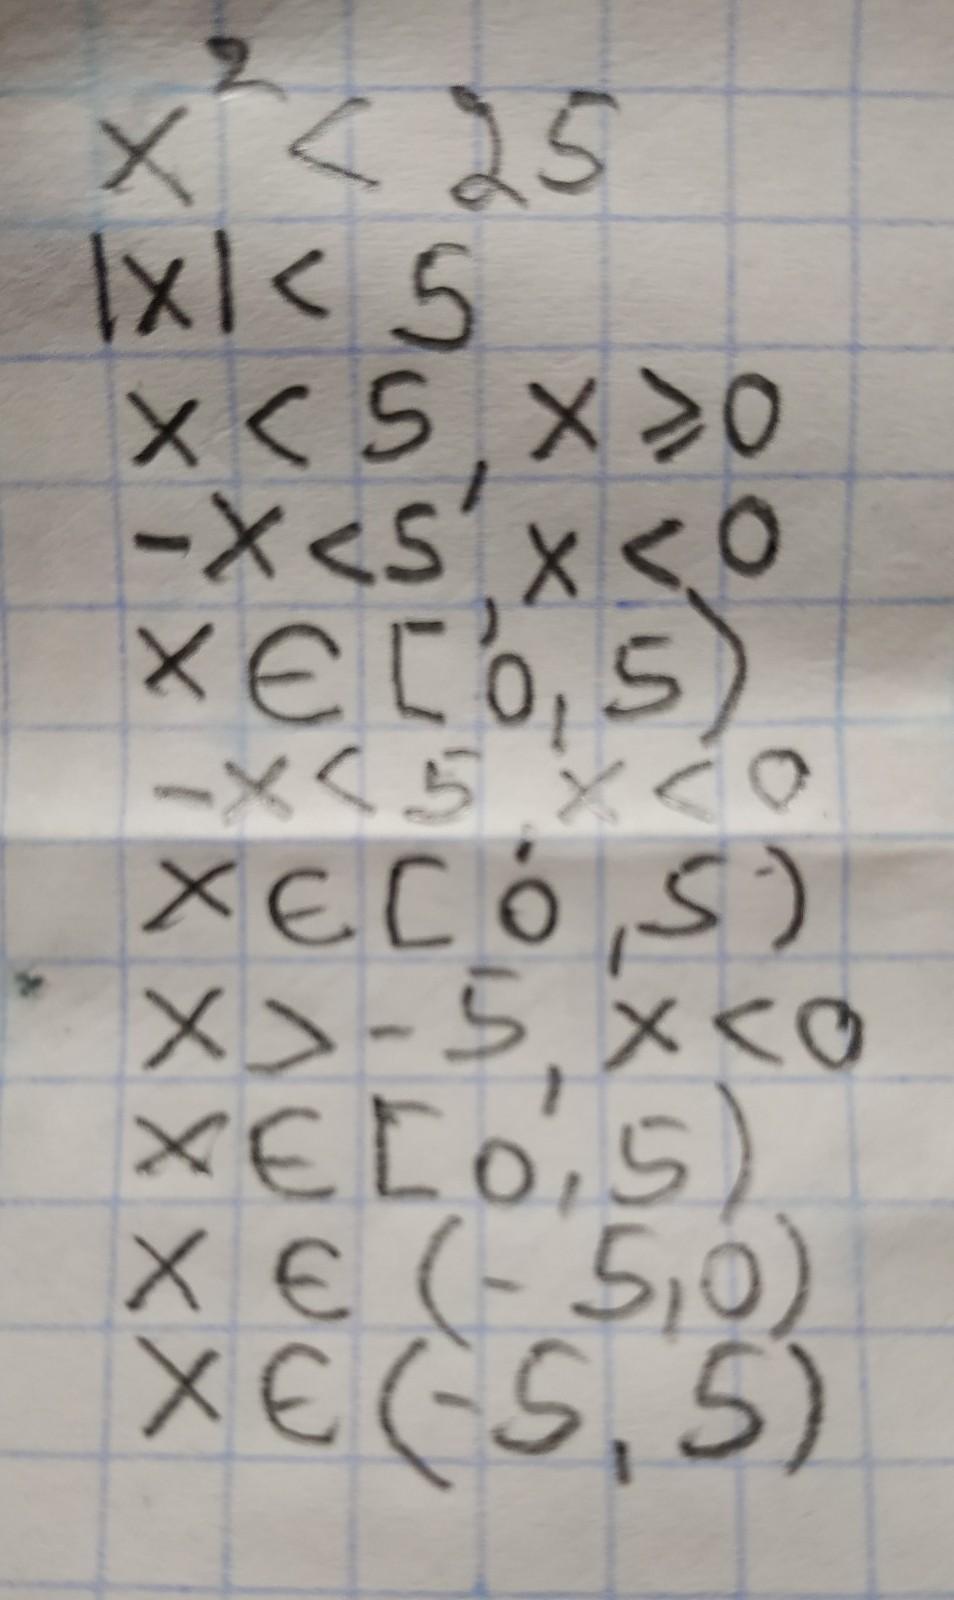 x² < 25
|x| < 5
x < 5, x ⩾ 0
-x < 5, x < 0
x ∈ [0, 5)
-x < 5, x < 0
x ∈ [0, 5)
x > -5, x < 0
x ∈ [0, 5)
x ∈ (-5, 0)
x ∈ (-5, 5)